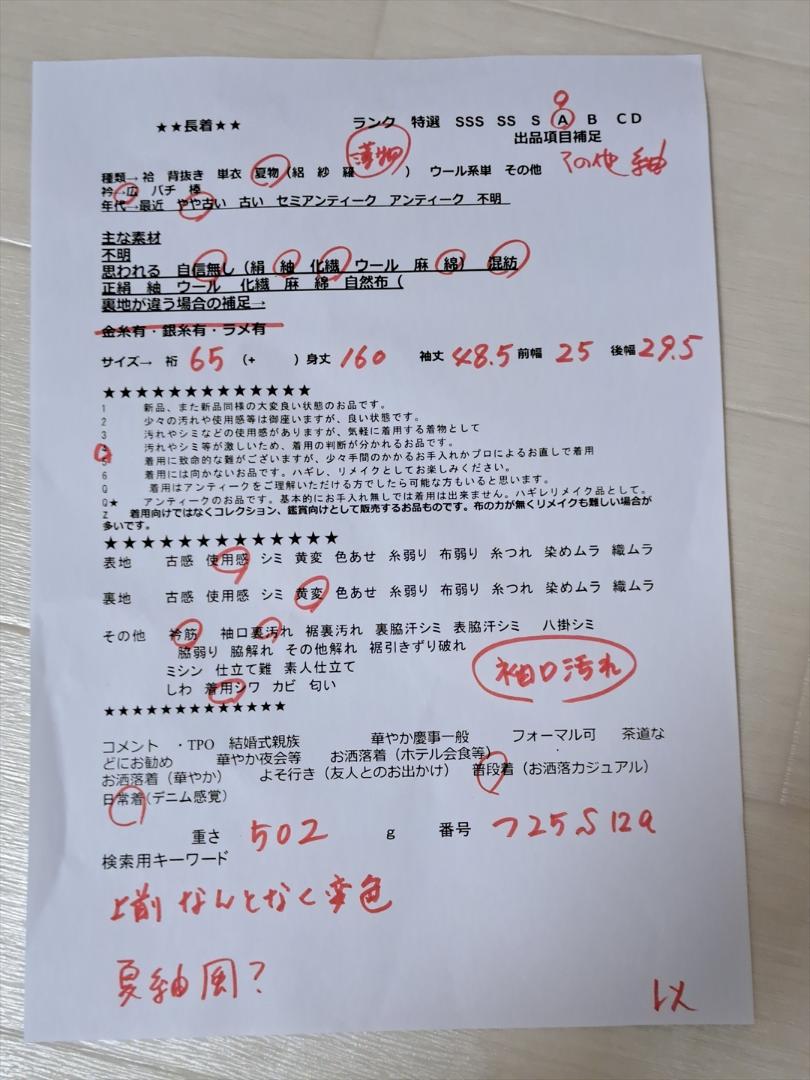 ★★長着★★ ランク 特選 SSS SS S A B C D
出品項目補足
薄物 その他 紬
種類→袷 背抜き 単衣 夏物(絽 紗 羅 ) ウール系単 その他
衿→広 バチ 棒
年代→最近 やや古い 古い セミアンティーク アンティーク 不明
主な素材
不明
思われる 自信無し(絹 紬 化繊 ウール 麻 綿) 混紡
正絹 紬 ウール 化繊 麻 綿 自然布(
裏地が違う場合の補足→
金糸有・銀糸有・ラメ有
サイズ→ 裄 65 (+ )身丈 160 袖丈 48.5 前幅 25 後幅 29.5
★★★★★★★★★★★★★
1 新品、また新品同様の大変良い状態のお品です。
2 少々の汚れや使用感等は御座いますが、良い状態です。
3 汚れやシミなどの使用感がありますが、気軽に着用する着物として
4 汚れやシミ等が激しいため、着用の判断が分かれるお品です。
5 着用に致命的な難がございますが、少々手間のかかるお手入れかプロによるお直しで着用
6 着用には向かないお品です。ハギレ、リメイクとしてお楽しみください。
Q 着用はアンティークをご理解いただける方でしたら可能な方もいると思います。
Q★ アンティークのお品です。基本的にお手入れ無しでは着用は出来ません。ハギレリメイク品として。
Z 着用向けではなくコレクション、鑑賞向けとして販売するお品ものです。布の力が無くリメイクも難しい場合が
多いです。
★★★★★★★★★★★★★
表地 古感 使用感 シミ 黄変 色あせ 糸弱り 布弱り 糸つれ 染めムラ 織ムラ
裏地 古感 使用感 シミ 黄変 色あせ 糸弱り 布弱り 糸つれ 染めムラ 織ムラ
その他 衿筋 袖口裏汚れ 裾裏汚れ 裏脇汗シミ 表脇汗シミ 八掛シミ
脇弱り 脇解れ その他解れ 裾引きずり破れ
ミシン 仕立て難 素人仕立て
しわ 着用シワ カビ 匂い
袖口汚れ
★★★★★★★★★★★★★
コメント ・TPO 結婚式親族 華やか慶事一般 フォーマル可 茶道な
どにお勧め 華やか夜会等 お洒落着(ホテル会食等)
お洒落着(華やか) よそ行き(友人とのお出かけ) 普段着(お洒落カジュアル)
日常着(デニム感覚)
重さ 502 g 番号
検索用キーワード
上前 なんとなく変色
夏紬風?